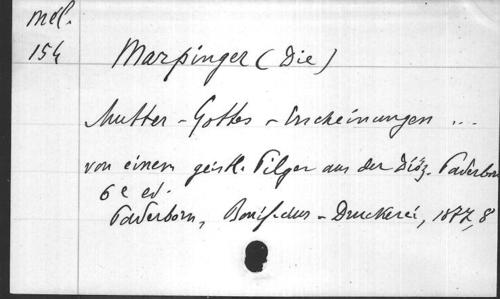 Mél.
154
Marpinger (Die)
Mutter-Gottes-Erscheinungen ...
von einem geistl. Pilger aus der Diöz. Paderborn
6e ed.
Paderborn, Bonif.cius-Druckerei, 1877, 8